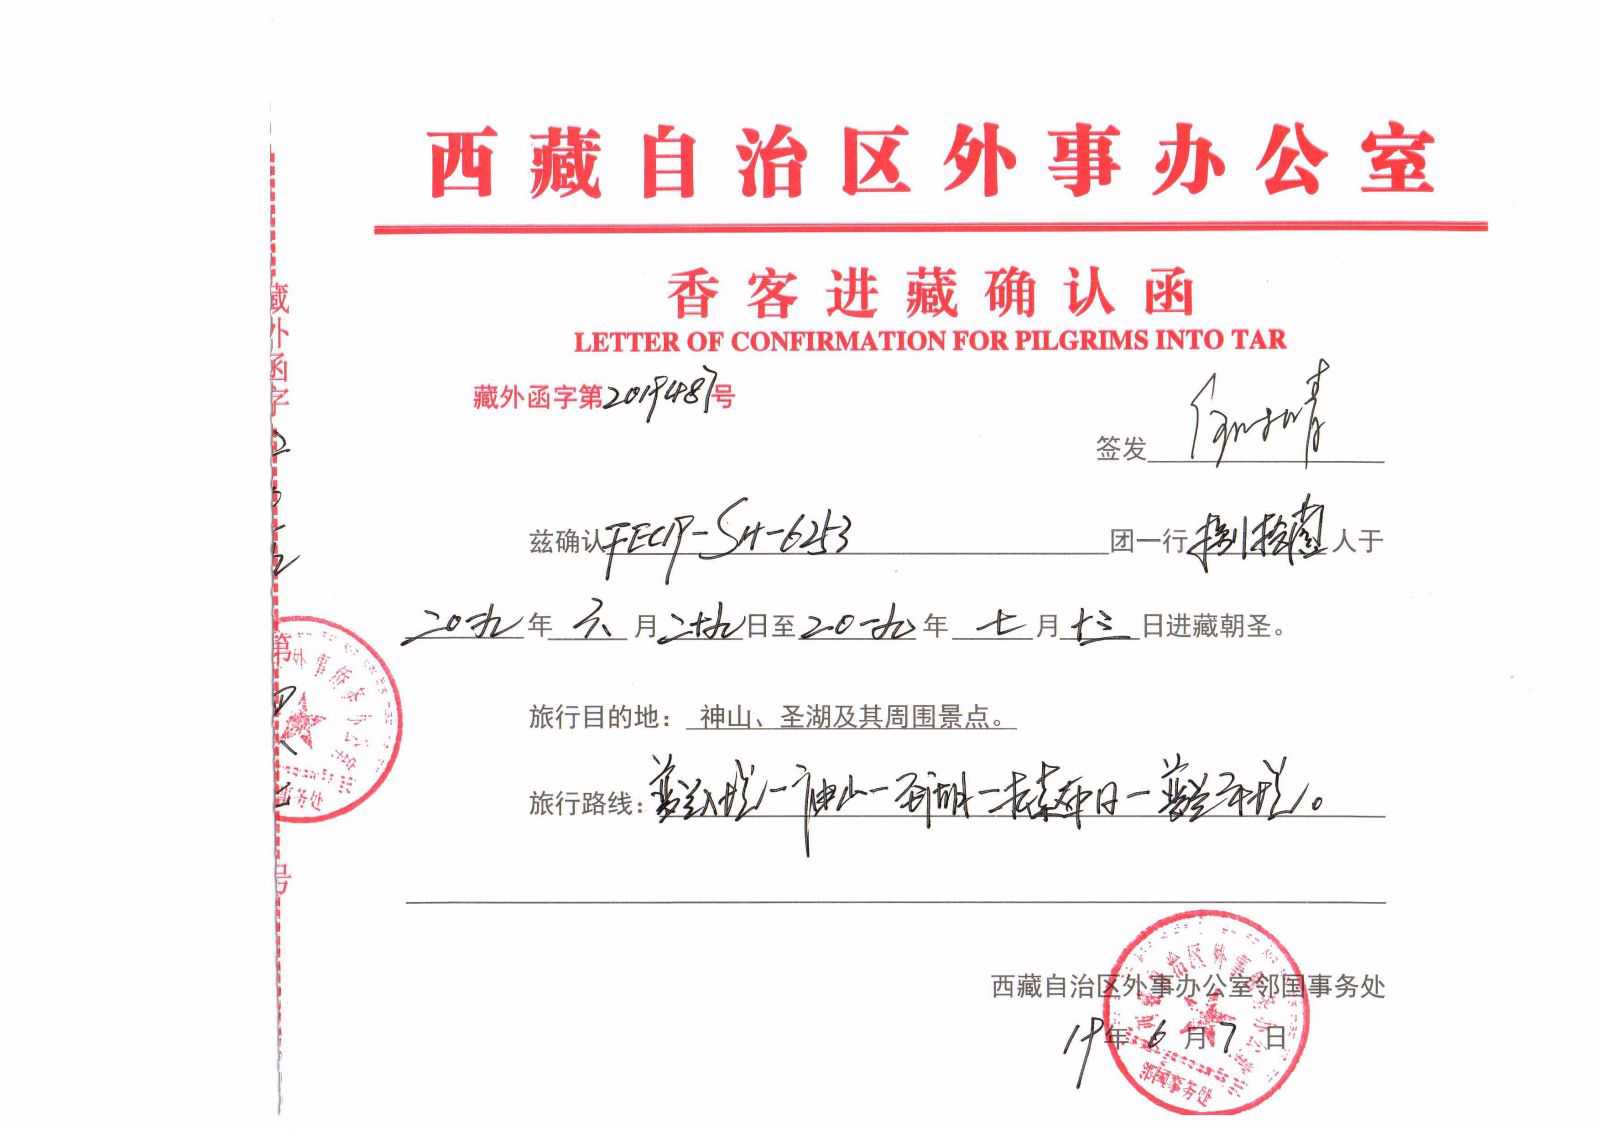 西藏自治区外事办公室
香客进藏确认函
LETTER OF CONFIRMATION FOR PILGRIMS INTO TAR
藏外函字第2019487号
签发
兹确认FECIP-SH-6253团一行捌拾壹人于
二0一九年六月二十九日至二0一九年七月十三日进藏朝圣。
旅行目的地：神山、圣湖及其周围景点。
旅行路线：普兰入境—神山—圣湖—普兰出境。
西藏自治区外事办公室邻国事务处
19年6月7日
藏外函字
第
号
外事侨务办公室
事务处
西藏自治区外事侨务办公室
邻国事务处